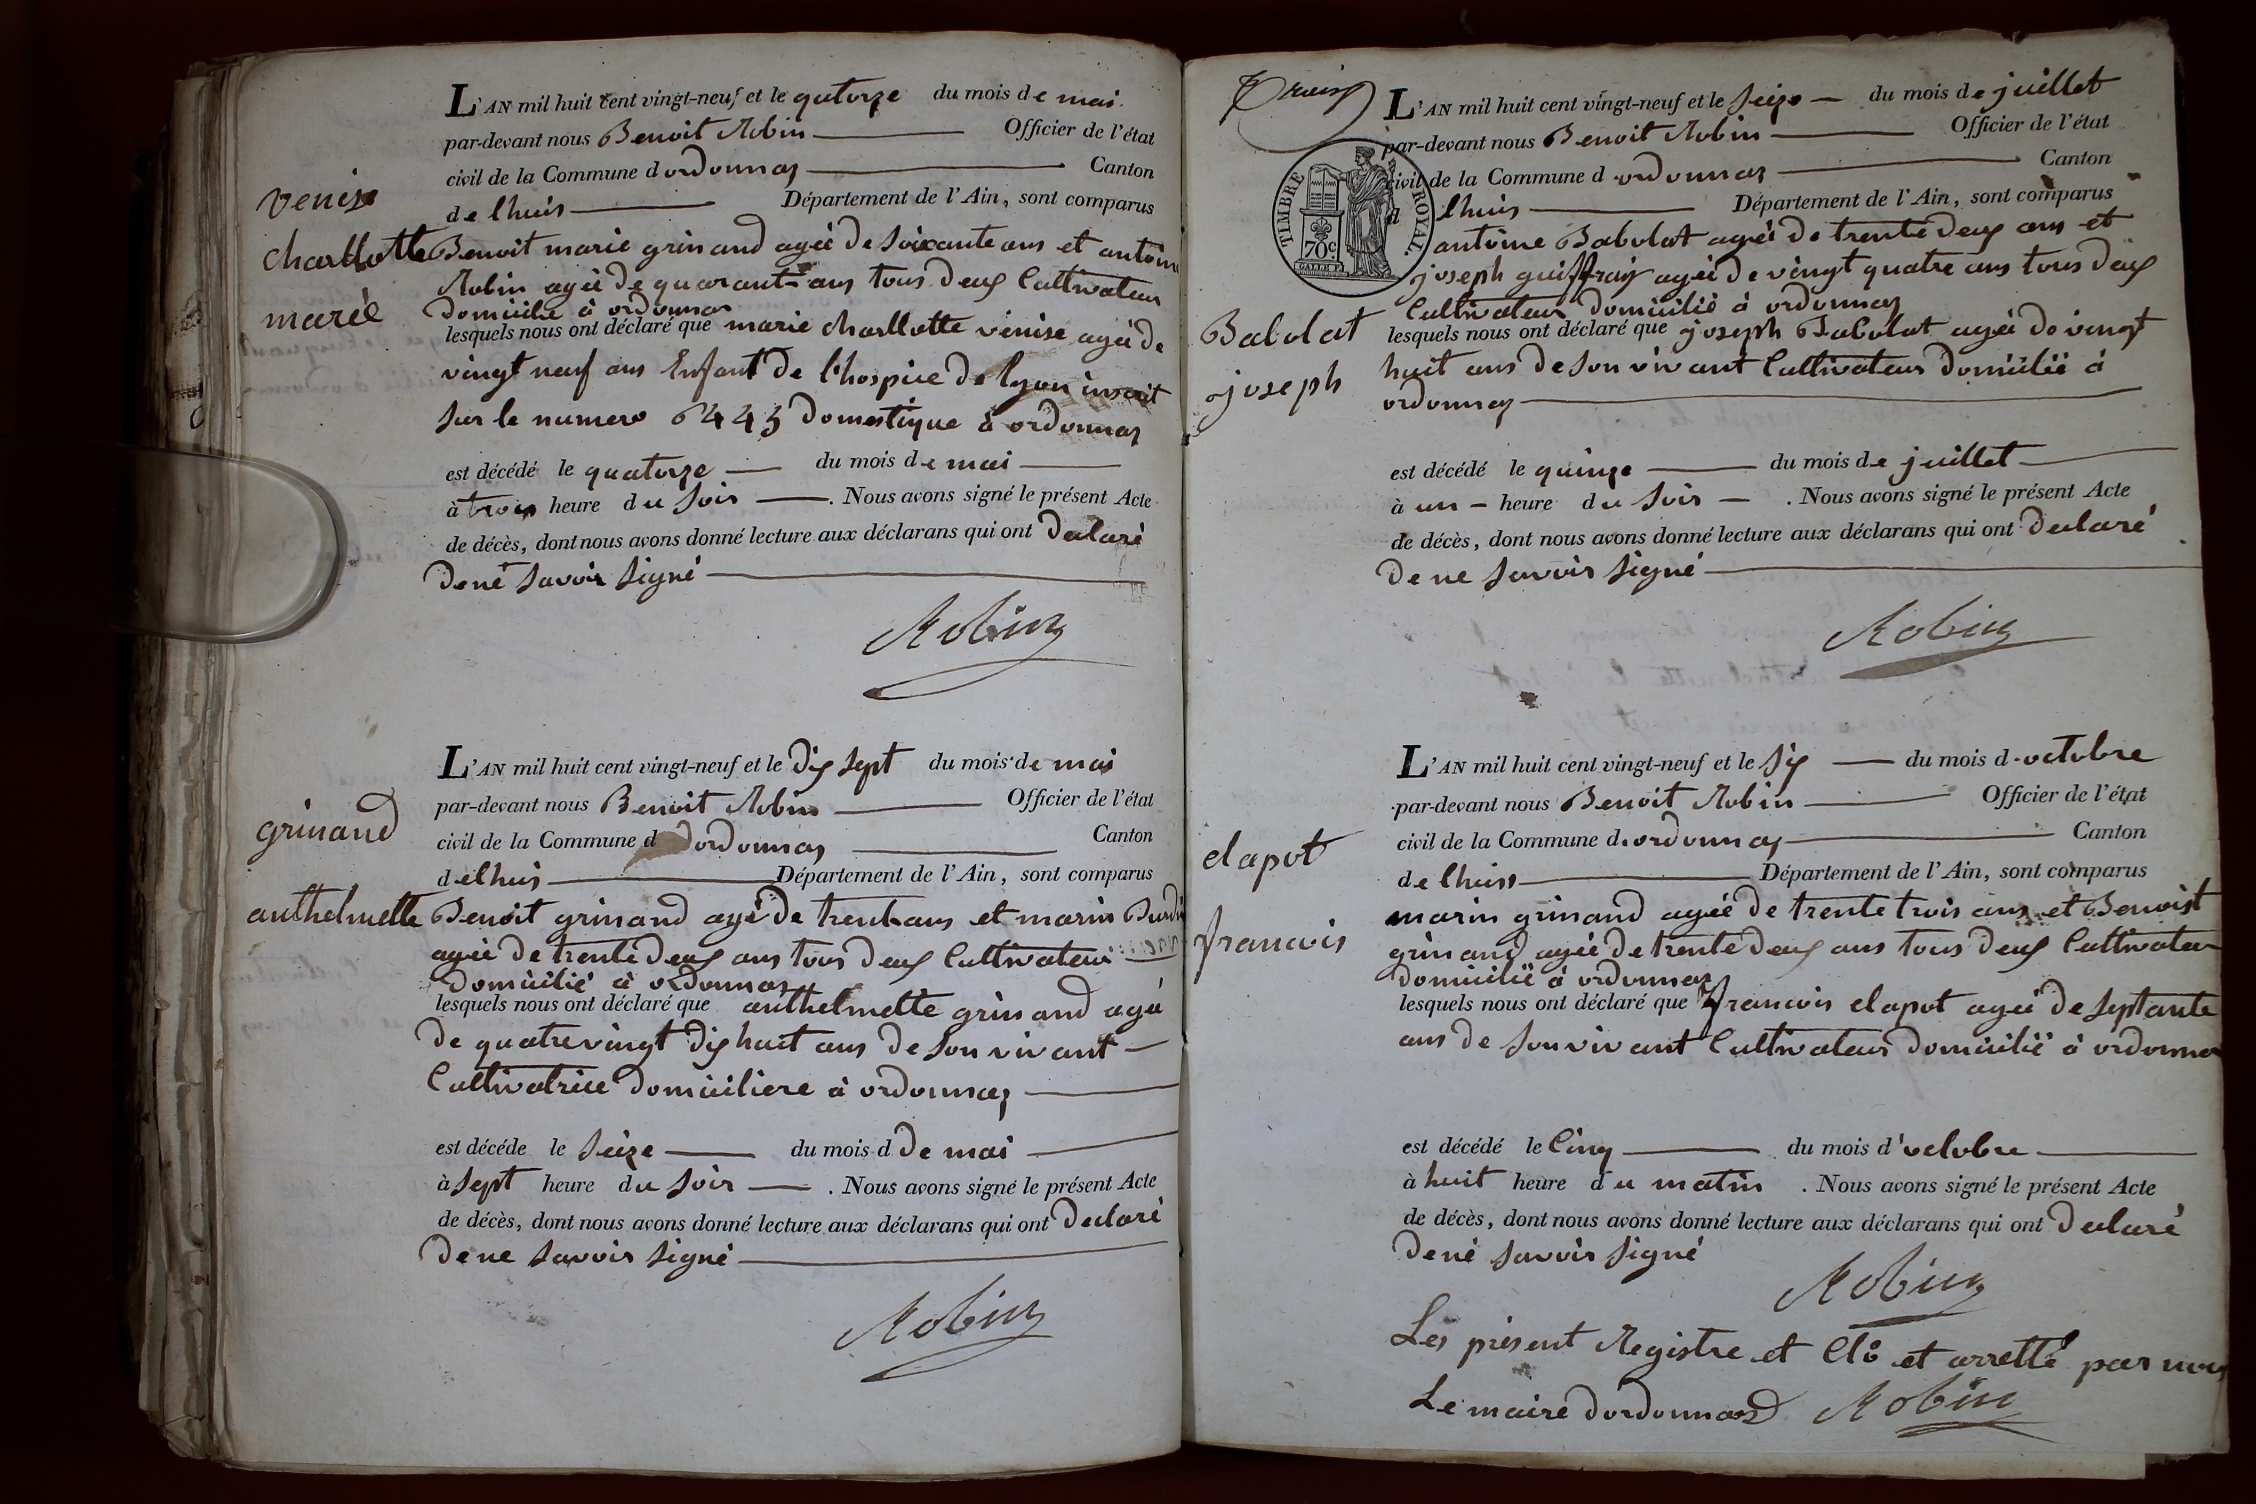 venise
charllotte
marié
L'AN mil huit cent vingt-neuf et le qutorze du mois de mai
par-devant nous Benoit Robin Officier de l'état
civil de la Commune dordonnas Canton
de lhuis Département de l'Ain, sont comparus
Benoit marie grinand agée de soixante ans et antoine
Robin agée de quarante ans tous deux Cultivateur
domicilié à ordonnas
lesquels nous ont déclaré que marie charllotte venise agée de
vingt neuf ans Enfant de l'hospice de lyon inscrit
sur le numero 6443 domestique à ordonnas
est décédé le quatorze du mois de mai
à trois heure du soir . Nous avons signé le présent Acte
de décès, dont nous avons donné lecture aux déclarans qui ont declaré
de né savoir signé
Robin
grinand
anthelmette
L'AN mil huit cent vingt-neuf et le dix sept du mois de mai
par-devant nous Benoit Robin Officier de l'état
civil de la Commune d dordonnas Canton
delhuis Département de l'Ain, sont comparus
Benoit grinand agé de trente ans et marin
agée de trente deux ans tous deux Cultivateur
domicilié à ordonnas
lesquels nous ont déclaré que anthelmette grinand agé
de quatre vingt dix huit ans de son vivant
Cultivatrice domiciliere à ordonnas
est décéde le seize du mois d de mai
à sept heure du soir . Nous avons signé le présent Acte
de décès, dont nous avons donné lecture aux déclarans qui ont declaré
de ne savoir signé
Robin
TIMBRE ROYAL.
70c.
Babolat
joseph
L'AN mil huit cent vingt-neuf et le seize du mois de juillet
par-devant nous Benoit Robin Officier de l'état
civil de la Commune d ordonnas Canton
d lhuis Département de l'Ain, sont comparus
antoine Babolat ageé de trente deux ans et
joseph guiffray ageé de vingt quatre ans tous deux
Cultivateur domicilié à ordonnas
lesquels nous ont déclaré que joseph Babolat ageé de vingt
huit ans de son vivant Cultivateur domicilié à
ordonnas
est décédé le quinze du mois de juillet
à un heure du soir . Nous avons signé le présent Acte
de décès, dont nous avons donné lecture aux déclarans qui ont declaré
de ne savoir signé
Robin
clapot
francois
L'AN mil huit cent vingt-neuf et le six du mois d octobre
par-devant nous Benoit Robin Officier de l'état
civil de la Commune d ordonnas Canton
de lhuis Département de l'Ain, sont comparus
marin grinand ageé de trente trois ans et Benoist
grinand ageé de trente deux ans tous deux Cultivateur
domicilié à ordonnas
lesquels nous ont déclaré que francois clapot ageé de septante
ans de son vivant Cultivateur domicilié à ordonnas
est décédé le Cinq du mois d'octobre
à huit heure du matin . Nous avons signé le présent Acte
de décès, dont nous avons donné lecture aux déclarans qui ont declaré
de né savoir signé
Robin
Les présent Registre et Clo et arretté par nous
Le maire dordonnas Robin